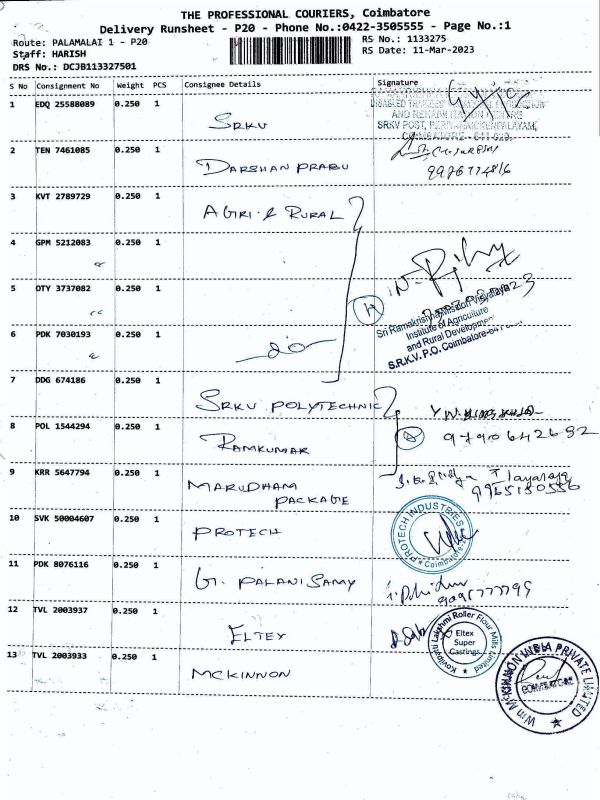 THE PROFESSIONAL COURIERS, Coimbatore
Delivery Runsheet - P20 - Phone No.:0422-3505555 - Page No.:1
Route: PALAMALAI 1 - P20
RS No.: 1133275
Staff: HARISH
RS Date: 11-Mar-2023
DRS No.: DCJB113327501
S No Consignment No Weight PCS Consignee Details Signature
1 EDQ 25588089 0.250 1 SRKV
AND REHABILITATION CENTRE
SRKV POST,
COIMBATORE
2 TEN 7461085 0.250 1 DARSHAN PRABU
3 KVT 2789729 0.250 1 AGRI & RURAL
4 GPM 5212083 0.250 1
5 OTY 3737082 0.250 1
Sri Ramakrishna Mission Vidyalaya
Institute of Agriculture
and Rural Development
S.R.K.V. P.O. Coimbatore
6 PDK 7030193 0.250 1
7 DDG 674186 0.250 1 SRKV POLYTECHNIC
8 POL 1544294 0.250 1 RAMKUMAR
9790642682
9 KRR 5647794 0.250 1 MARUDHAM
PACKAGE
10 SVK 50004607 0.250 1 PROTECH
PROTECH INDUSTRIES
Coimbatore
11 PDK 8076116 0.250 1 G. PALANISAMY
12 TVL 2003937 0.250 1 ELTEX
Kovilpatti Lakshmi Roller Flour Mills Limited
Eltex
Super
Castings
13 TVL 2003933 0.250 1 MCKINNON
Wm MCKINNON INDIA PRIVATE LIMITED
COIMBATORE